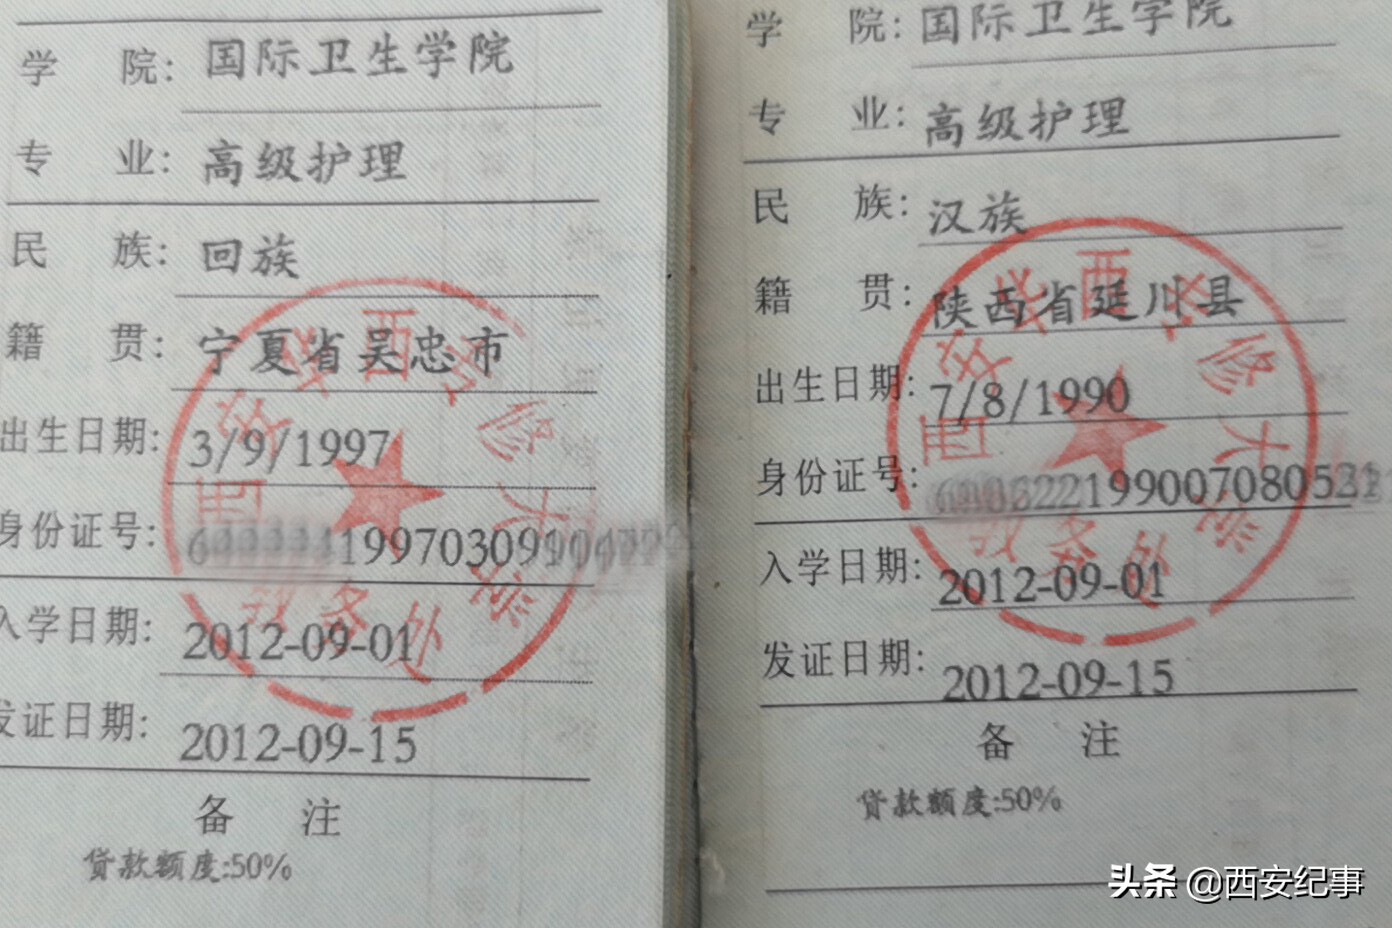 学 院: 国际卫生学院
专 业: 高级护理
民 族: 回族
籍 贯: 宁夏省吴忠市
出生日期: 3/9/1997
身份证号: 19970309
入学日期: 2012-09-01
发证日期: 2012-09-15
备 注
贷款额度:50%
学 院: 国际卫生学院
专 业: 高级护理
民 族: 汉族
籍 贯: 陕西省延川县
出生日期: 7/8/1990
身份证号: 2219900708052
入学日期: 2012-09-01
发证日期: 2012-09-15
备 注
贷款额度:50%
西安华西专修大学
教务处
西安华西专修大学
教务处
头条 @西安纪事